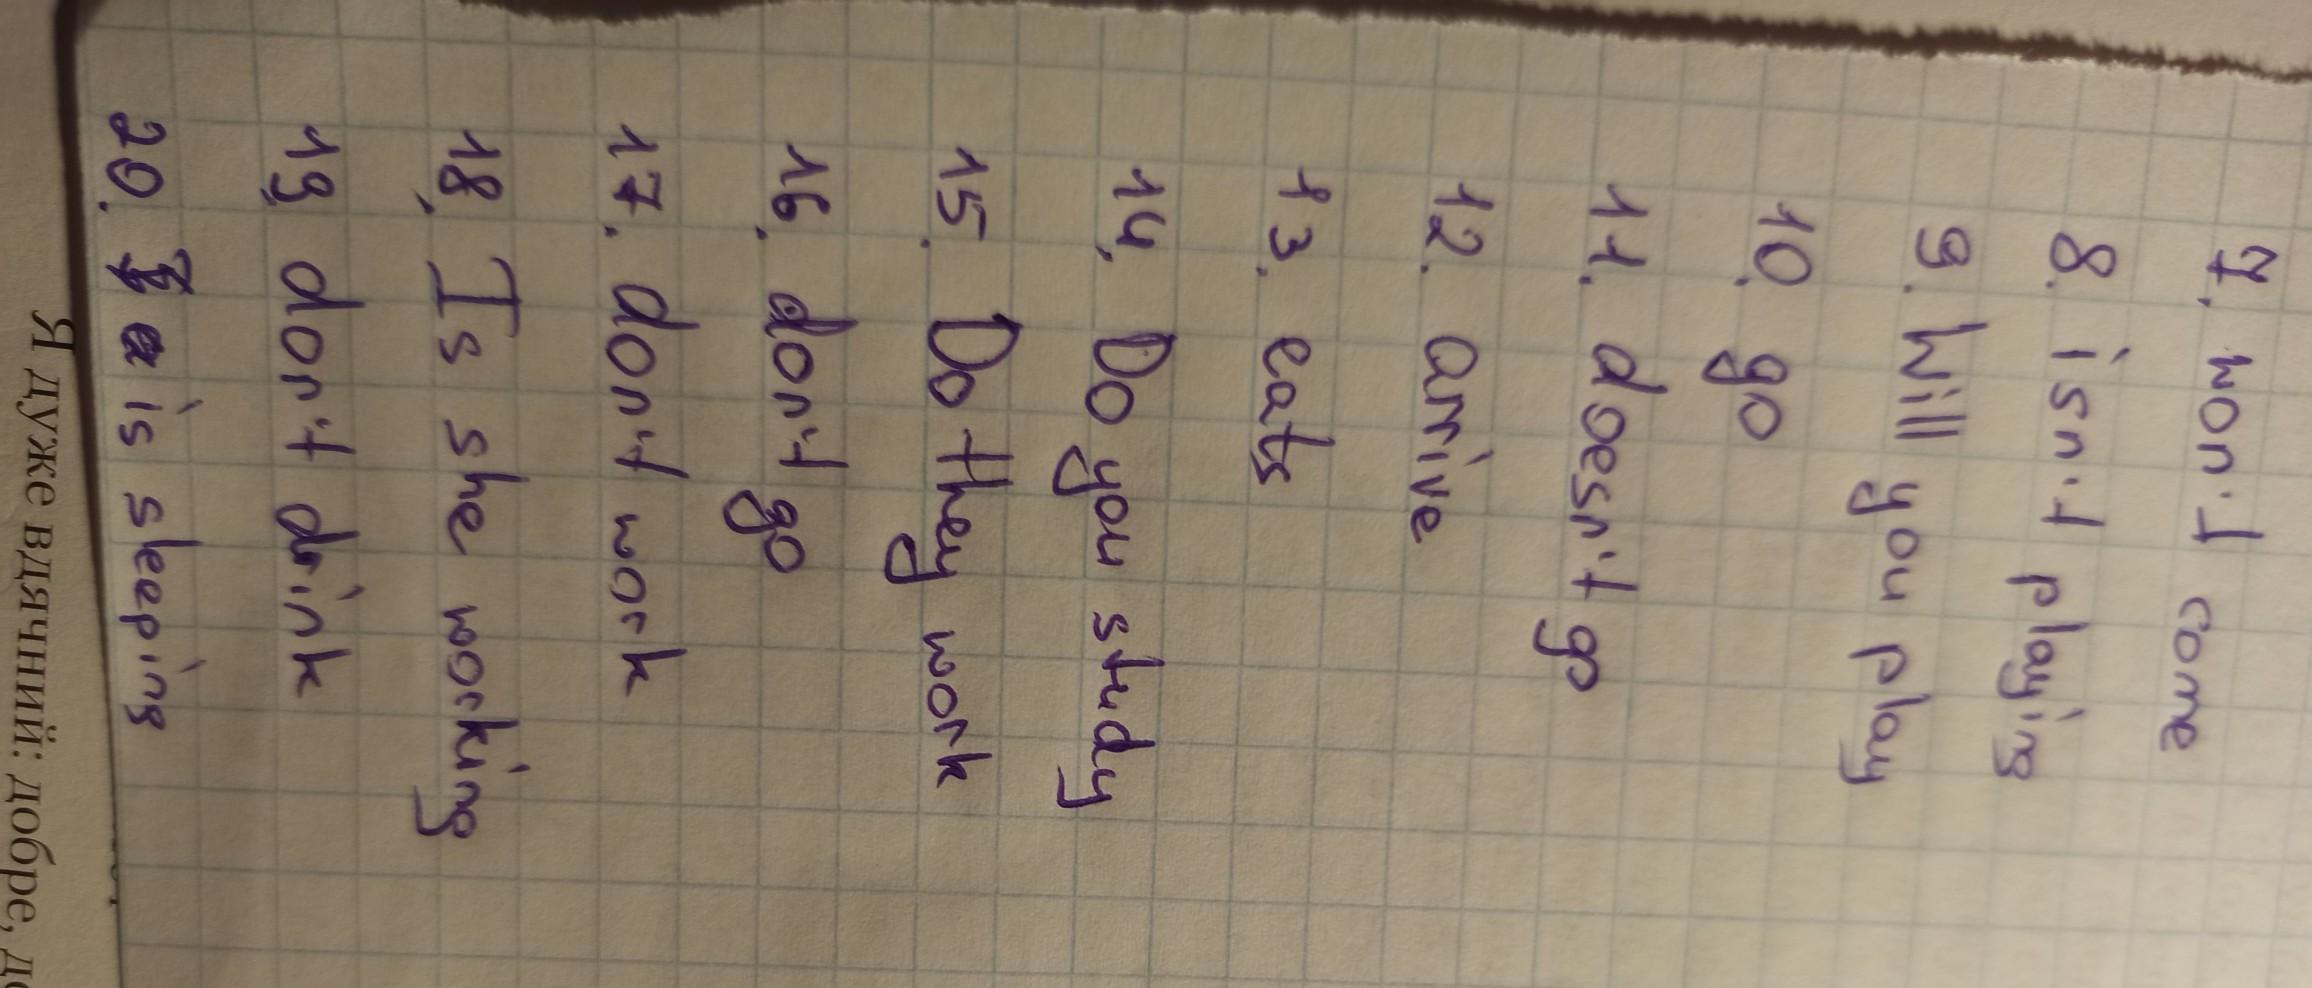 7. won't come
8. isn't playing
9. Will you play
10. go
11. doesn't go
12. arrive
13. eats
14. Do you study
15. Do they work
16. don't go
17. don't work
18. Is she working
19 don't drink
20. is sleeping
Я дуже вдячний: добре,